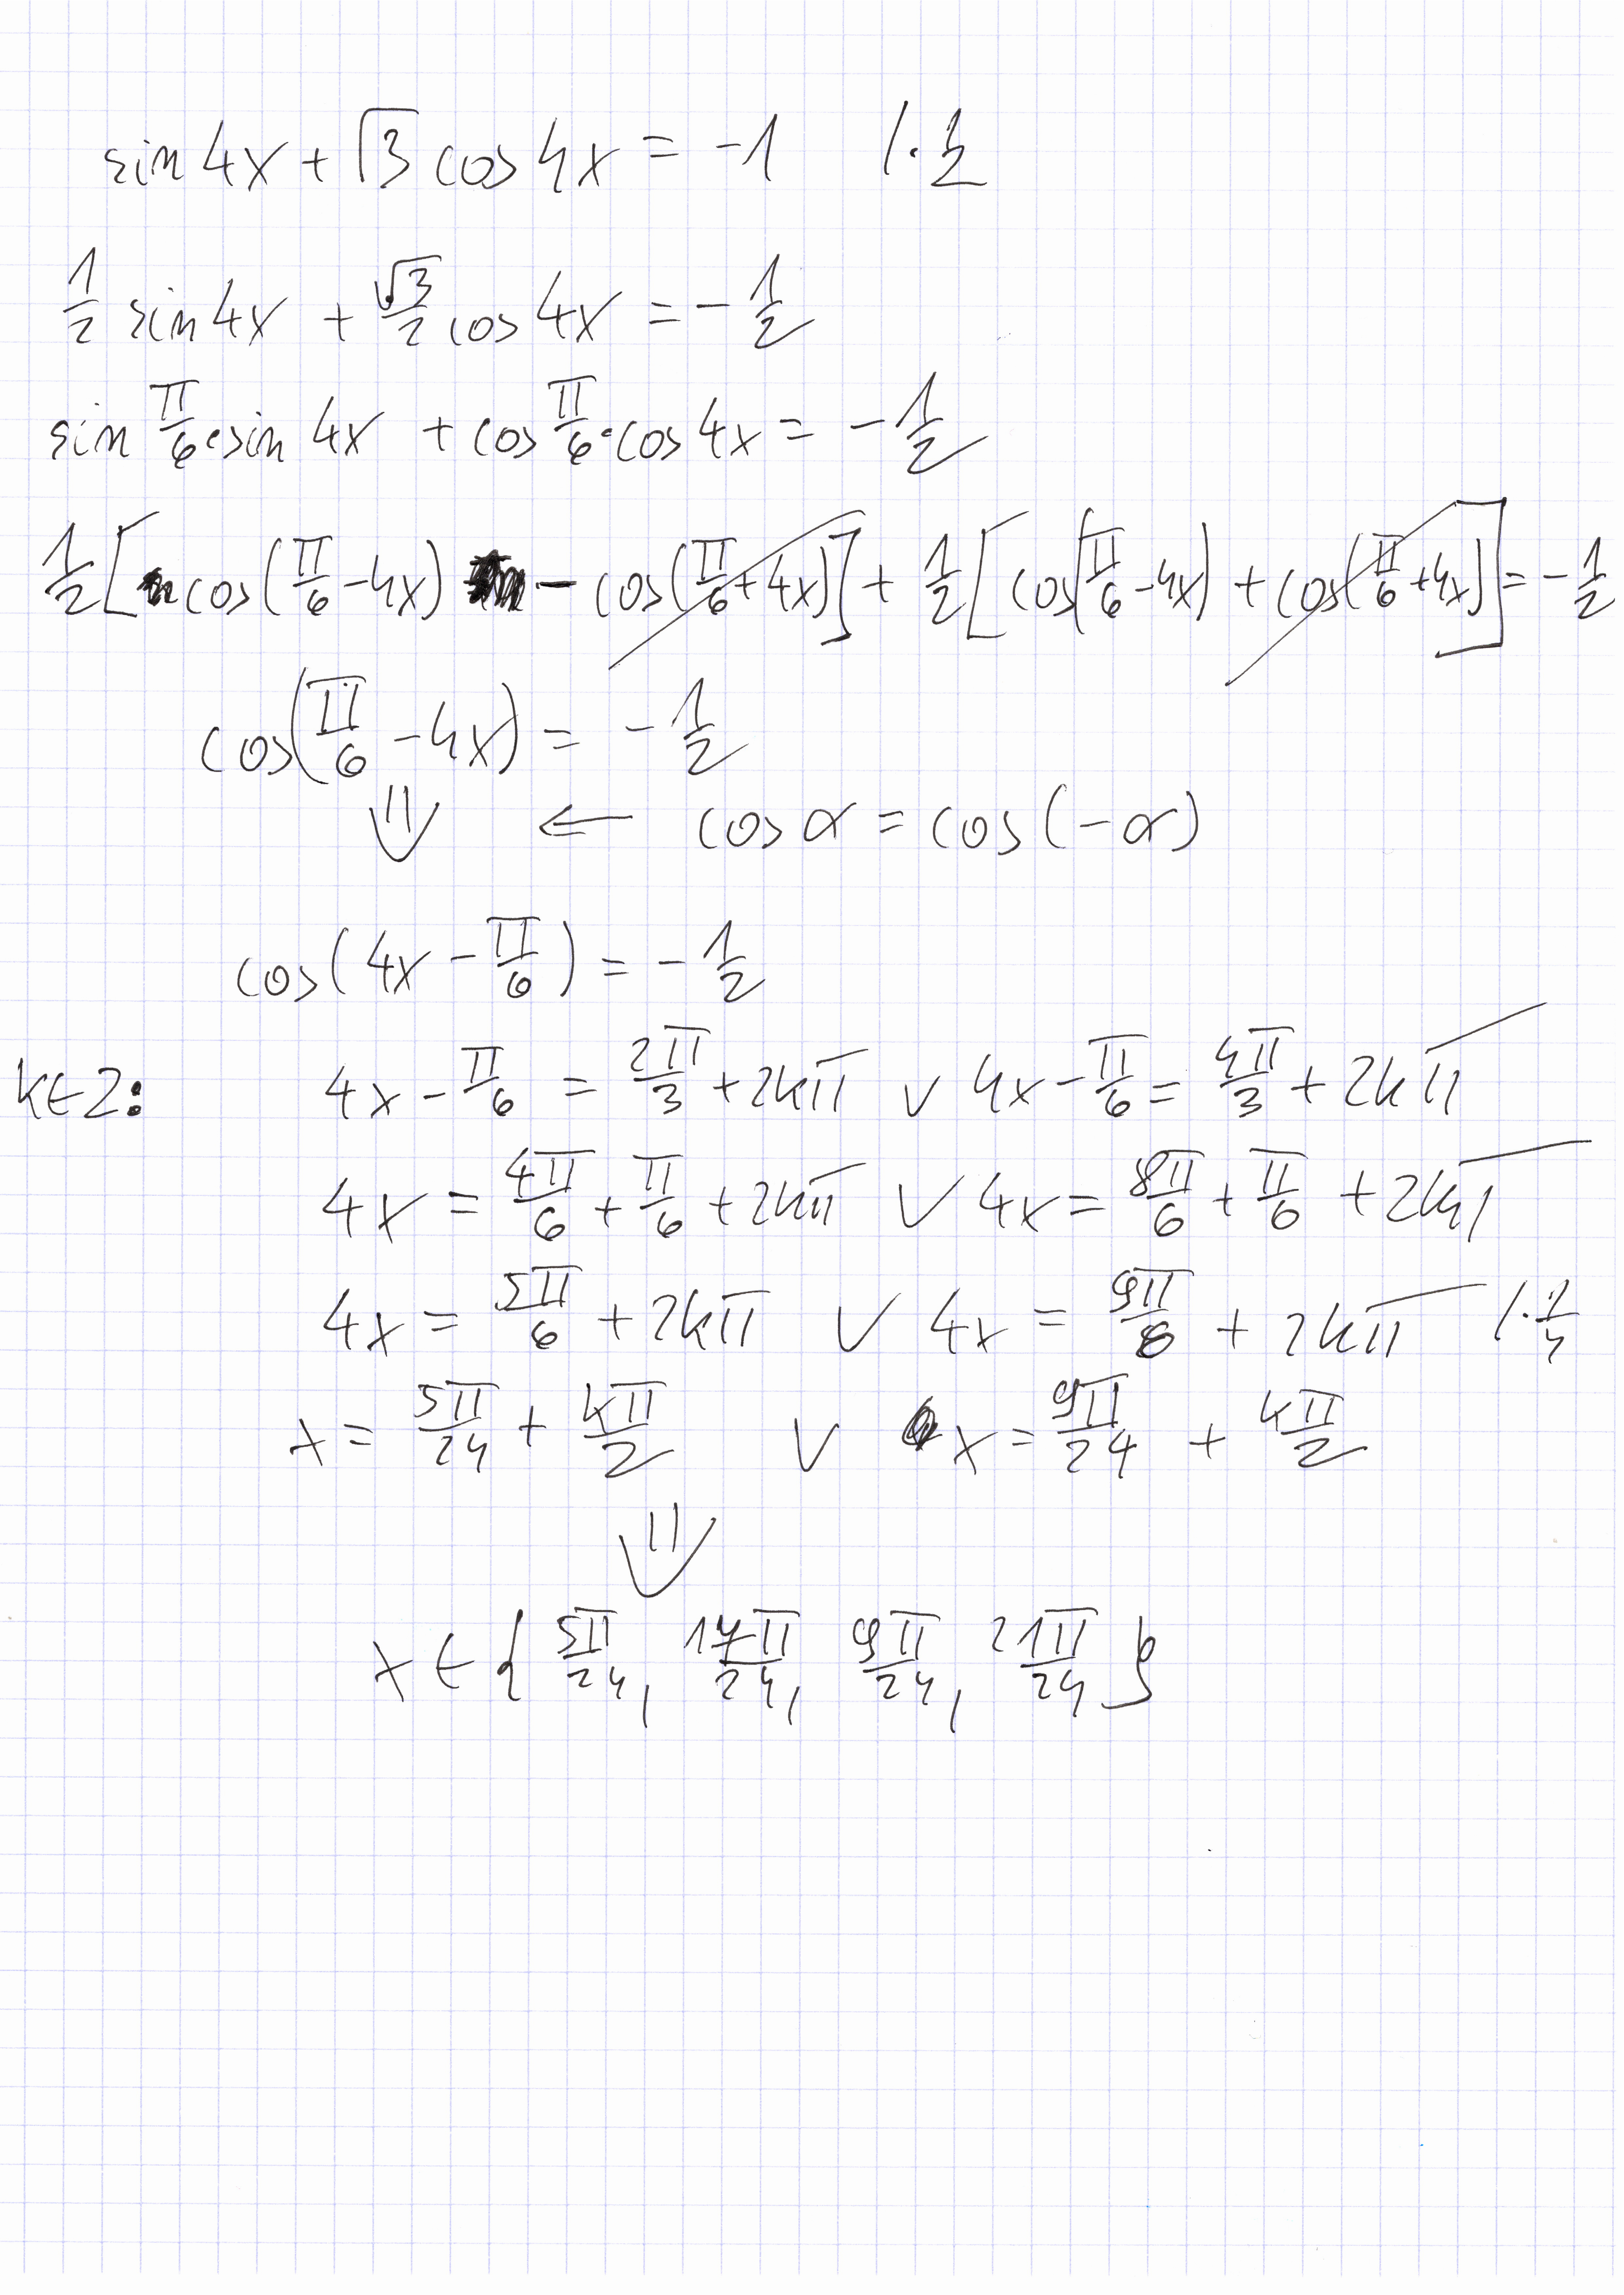 sin 4x + √3 cos 4x = -1   /· 1/2
1/2 sin 4x + √3/2 cos 4x = - 1/2
sin π/6 · sin 4x + cos π/6 · cos 4x = - 1/2
1/2 [cos(π/6 - 4x) - cos(π/6 + 4x)] + 1/2 [cos(π/6 - 4x) + cos(π/6 + 4x)] = - 1/2
cos(π/6 - 4x) = - 1/2
⇓ ← cos α = cos(-α)
cos(4x - π/6) = - 1/2
k∈Z: 4x - π/6 = 2π/3 + 2kπ ∨ 4x - π/6 = 4π/3 + 2kπ
4x = 4π/6 + π/6 + 2kπ ∨ 4x = 8π/6 + π/6 + 2kπ
4x = 5π/6 + 2kπ ∨ 4x = 9π/6 + 2kπ   /· 1/4
x = 5π/24 + kπ/2 ∨ x = 9π/24 + kπ/2
⇓
x ∈ { 5π/24, 17π/24, 9π/24, 21π/24 }